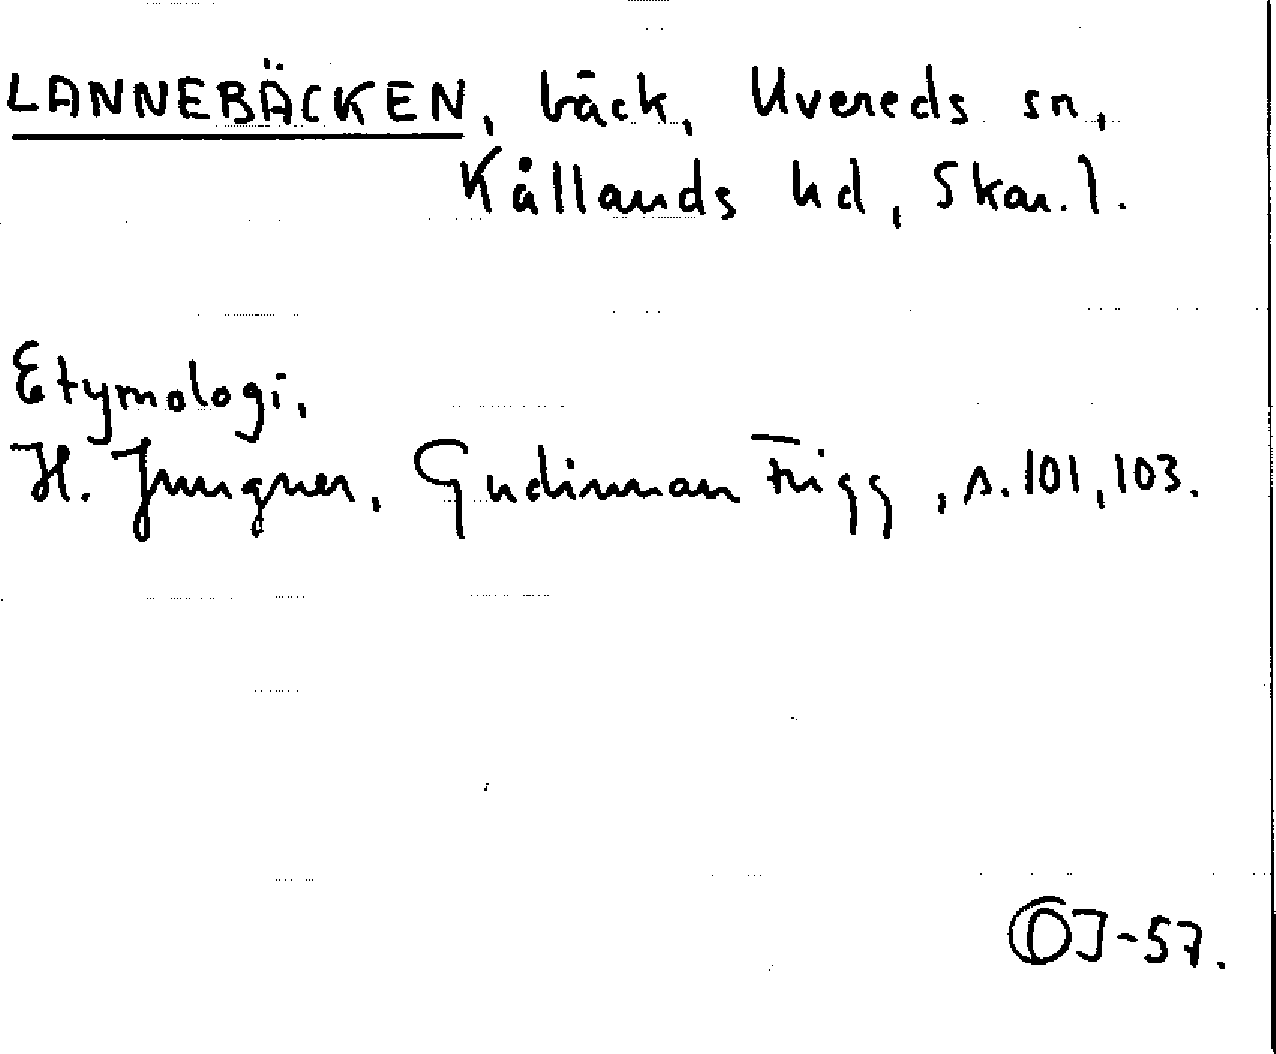 LANNEBÄCKEN, bäck, Uvereds sn,
Kållands hd, Skar.l.
Etymologi.
H. Jungner, Gudinnan Frigg, s. 101, 103.
OJ-57.